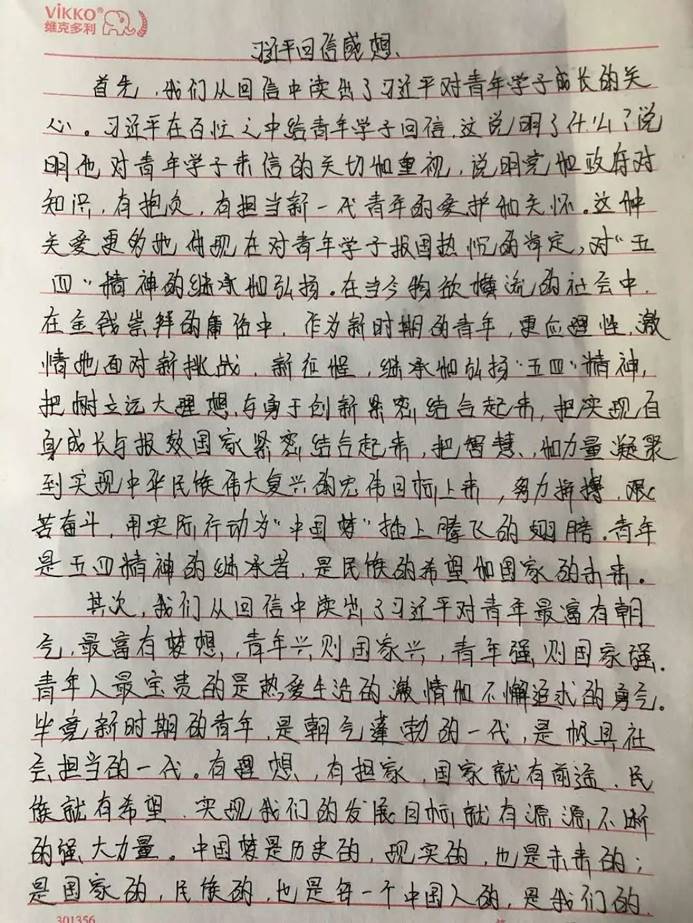 VIKKO®
维克多利
习近平回信感想、
首先，我们从回信中读出了习近平对青年学子成长的关
心。习近平在百忙之中给青年学子回信，这说明了什么？说
明他对青年学子来信的关切和重视，说明党和政府对
知识，有抱负，有担当新一代青年的爱护和关怀。这种
关爱更多地体现在对青年学子报国热忱的肯定，对"五
四"精神的继承和弘扬。在当今物欲横流的社会中，
在金钱崇拜的庸俗中，作为新时期的青年，更应理性、激
情地面对新挑战、新征程，继承和弘扬"五四"精神，
把树立远大理想与勇于创新紧密结合起来，把实现自
身成长与报效国家紧密结合起来，把智慧、和力量凝聚
到实现中华民族伟大复兴的宏伟目标上来，努力拼搏、艰
苦奋斗，用实际行动为"中国梦"插上腾飞的翅膀。青年
是五四精神的继承者，是民族的希望和国家的未来。
其次，我们从回信中读出了习近平对青年最富有朝
气，最富有梦想，青年兴则国家兴，青年强则国家强。
青年人最宝贵的是热爱生活的激情和不懈追求的勇气。
毕竟新时期的青年，是朝气蓬勃的一代，是极具社
会担当的一代。有理想、有担家，国家就有前途、民
族就有希望、实现我们的发展目标就有源源不断
的强大力量。中国梦是历史的，现实的，也是未来的；
是国家的，民族的，也是每一个中国人的，是我们的
301356